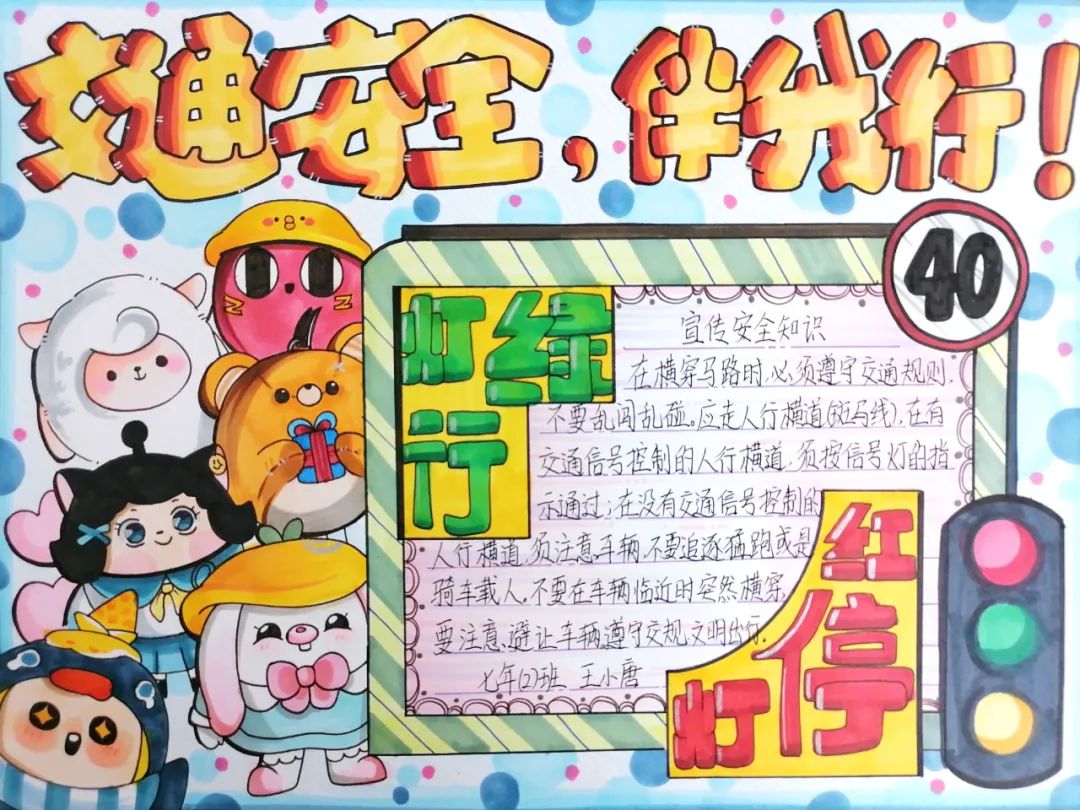 交通安全,伴我行!
40
绿灯
行
宣传安全知识
在横穿马路时,必须遵守交通规则,
不要乱闯乱碰。应走人行横道(斑马线),在有
交通信号控制的人行横道,须按信号灯的指
示通过;在没有交通信号控制的
人行横道,须注意车辆,不要追逐猛跑或是
骑车载人。不要在车辆临近时突然横穿
要注意避让车辆遵守交规文明出行.
七年(2)班 王小唐
红
停
灯